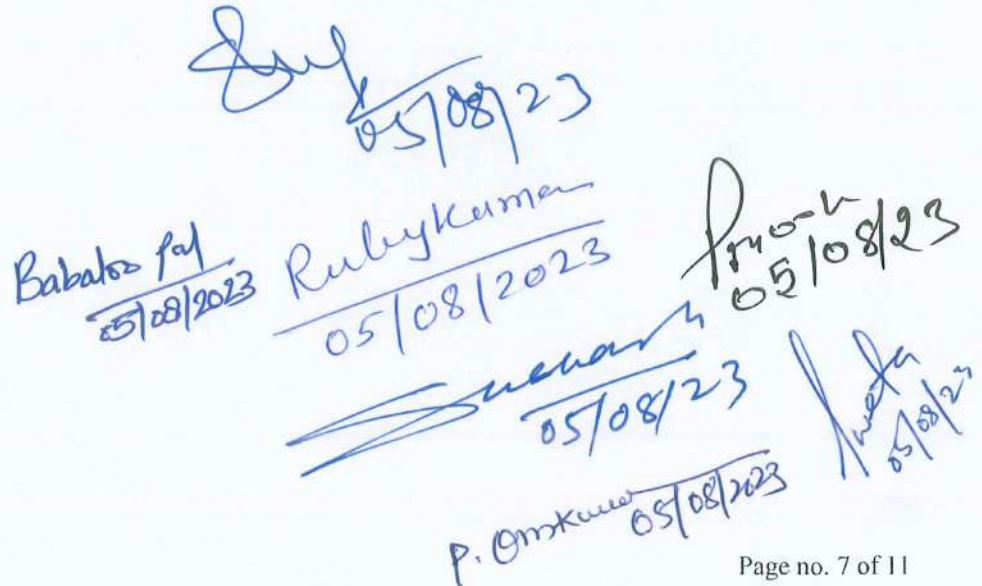 05/08/23
Babatos Pal
05/08/2023
Ruby Kumari
05/08/2023
05/08/23
05/08/23
Sweta
05/08/23
P. Omkumar 05/08/2023
Page no. 7 of 11